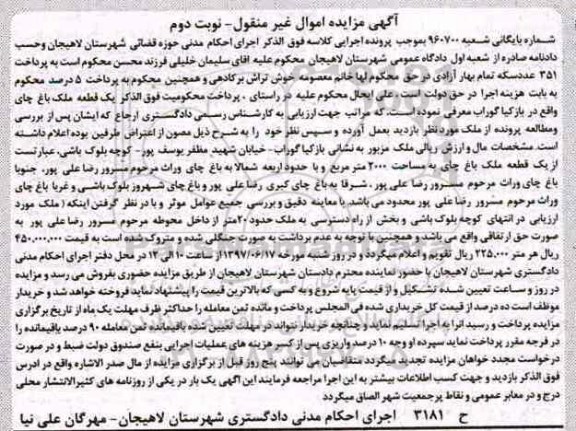 آگهی مزایده اموال غیر منقول- نوبت دوم
شماره بایگانی شعبه ۹۶۰۷۰۰ بموجب پرونده اجرایی کلاسه فوق الذکر اجرای احکام مدنی حوزه قضائی شهرستان لاهیجان وحسب
دادنامه صادره از شعبه اول دادگاه عمومی شهرستان لاهیجان محکوم علیه اقای سلیمان خلیلی فرزند محسن محکوم است به پرداخت
۳۵۱ عددسکه تمام بهار آزادی در حق محکوم لها خانم معصومه خوش تراش برکادهی و همچنین محکوم به پرداخت ۵ درصد محکوم
به بابت هزینه اجرا در حق دولت است، علی ایحال محکوم علیه در راستای ، پرداخت محکومیت فوق الذکر یک قطعه ملک باغ چای
واقع در بازکیا گوراب معرفی نموده است، که مراتب جهت ارزیابی به کارشناس رسمی دادگستری ارجاع که ایشان پس از بررسی
ومطالعه پرونده از ملک مورد نظر بازدید بعمل آورده و سپس نظر خود را به شرح ذیل مصون از اعتراض طرفین بوده اعلام داشته
است. مشخصات مال و ارزش ریالی ملک مزبور به نشانی بازکیا گوراب- خیابان شهید مظفر یوسف پور- کوچه بلوک باشی، عبارتست
از یک قطعه ملک باغ چای به مساحت ۲۰۰۰ متر مربع و با حدود اربعه شمالا به باغ چای وراث مرحوم مسرور رضا علی پور، جنوبا
باغ چای وراث مرحوم مسرور رضا علی پور ، شرقا به باغ چای کبری رضا علی پور و باغ چای شهروز بلوک باشی و غربا باغ چای
وراث مرحوم مسرور رضا علی پور محدود می باشد. با معاینه دقیق و بررسی جمیع عوامل موثر و با در نظر گرفتن اینکه ( ملک مورد
ارزیابی در انتهای کوچه بلوک باشی و بخش از راه دسترسی به ملک حدود ۲۰متر از داخل محوطه مرحوم مسرور رضا علی پور به
صورت حق ارتفاقی واقع می باشد و همچنین با توجه به عدم برداشت به صورت جنگلی شده و متروک شده است به قیمت ۴۵۰,۰۰۰,۰۰۰
ریال هر متر ۲۲۵,۰۰۰ ریال تقویم و اعلام میگردد و در روز شنبه مورخه ۱۳۹۷/۰۶/۱۷ از ساعت ۱۰ الی ۱۲ در محل دفتر اجرای احکام مدنی
دادگستری شهرستان لاهیجان با حضور نماینده محترم دادستان شهرستان لاهیجان از طریق مزایده حضوری بفروش می رسد و مزایده
در روز و ساعت تعیین شده تشکیل و از قیمت پایه شروع و به کسی که بالاترین قیمت را پیشنهاد نماید فروخته خواهد شد و خریدار
موظف است ده درصد از قیمت کل خریداری شده فی المجلس پرداخت و مانده ثمن معامله را حداکثر ظرف مهلت یک ماه از تاریخ برگزاری
مزایده پرداخت و رسید انرا به اجرا تسلیم نماید و چنانچه خریدار نتواند در مهلت تعیین شده باقیمانده ثمن معامله ۹۰ درصد باقیمانده را
در فرجه مقرر پرداخت نماید سپرده او وجه ۱۰ درصد واریزی پس از کسر هزینه های عملیات اجرایی بنفع صندوق دولت ضبط و در صورت
درخواست مجدد خواهان مزایده تجدید میگردد متقاضیان می توانند پنج روز قبل از برگزاری مزایده از مال صدر الاشاره واقع در ادرس
فوق الذکر بازدید و جهت کسب اطلاعات بیشتر به این اجرا مراجعه فرمایند این آگهی یک بار در یکی از روزنامه های کثیرالانتشار محلی
درج و در معابر عمومی و نقاط پرجمعیت شهر الصاق میگردد
ح ۳۱۸۱ اجرای احکام مدنی دادگستری شهرستان لاهیجان- مهرگان علی نیا